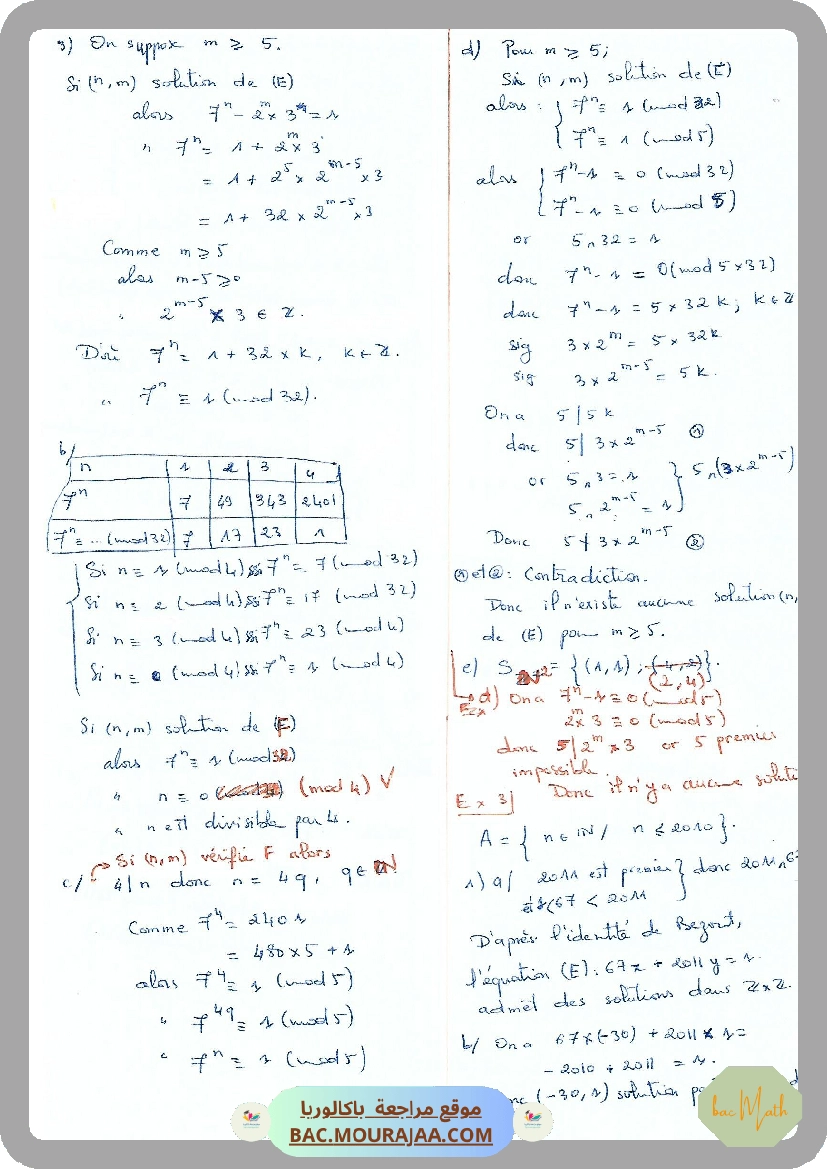 3) On suppose m ≥ 5.
Si (n, m) solution de (E)
alors 7^n - 2^m × 3 = 1
" 7^n = 1 + 2^m × 3
= 1 + 2^5 × 2^{m-5} × 3
= 1 + 32 × 2^{m-5} × 3
Comme m ≥ 5
alors m-5 ≥ 0
" 2^{m-5} × 3 ∈ Z.
D'où 7^n = 1 + 32 × k, k ∈ Z.
" 7^n ≡ 1 (mod 32).
b/
n 1 2 3 4
7^n 7 49 343 2401
7^n ≡ ... (mod 32) 7 17 23 1
Si n ≡ 1 (mod 4) ssi 7^n ≡ 7 (mod 32)
Si n ≡ 2 (mod 4) ssi 7^n ≡ 17 (mod 32)
Si n ≡ 3 (mod 4) ssi 7^n ≡ 23 (mod 4)
Si n ≡ 0 (mod 4) ssi 7^n ≡ 1 (mod 4)
Si (n, m) solution de F
alors 7^n ≡ 1 (mod 32)
" n ≡ 0 (mod 4) V
" n est divisible par 4.
Si (n, m) vérifie F alors
c/ 4 | n donc n = 4q, q ∈ IN
Comme 7^4 = 2401
= 480 × 5 + 1
alors 7^4 ≡ 1 (mod 5)
" 7^{4q} ≡ 1 (mod 5)
" 7^n ≡ 1 (mod 5)
d) Pour m ≥ 5;
Si (n, m) solution de (E)
alors : { 7^n ≡ 1 (mod 32)
7^n ≡ 1 (mod 5)
alors { 7^n - 1 ≡ 0 (mod 32)
7^n - 1 ≡ 0 (mod 5)
or 5 ∧ 32 = 1
donc 7^n - 1 ≡ 0 (mod 5×32)
donc 7^n - 1 = 5 × 32 k; k ∈ Z
sig 3 × 2^m = 5 × 32k
sig 3 × 2^{m-5} = 5k.
On a 5 | 5k
donc 5 | 3 × 2^{m-5} ①
or 5 ∧ 3 = 1
5 ∧ 2^{m-5} = 1 } 5 ∧ (3 × 2^{m-5})
Donc 5 ∤ 3 × 2^{m-5} ②
① et ② : Contradiction.
Donc il n'existe aucune solution (n,
de (E) pour m ≥ 5.
e) S_{IN²} = { (1, 1) ; (2, 4) }.
d) On a 7^n - 1 ≡ 0 (mod 5)
Ex 2
2^m × 3 ≡ 0 (mod 5)
donc 5 | 2^m × 3 or 5 premier
impossible.
Donc il n'y a aucune soluti
Ex 3
A = { n ∈ IN / n ≤ 2010 }.
1) a/ 2011 est premier
et 67 < 2011 } donc 2011 ∧ 67
D'après l'identité de Bezout,
l'équation (E) : 67x + 2011y = 1.
admet des solutions dans Z × Z.
b/ On a 67 × (-30) + 2011 × 1 =
- 2010 + 2011 = 1.
nc (-30, 1) solution p
موقع مراجعة باكالوريا
BAC.MOURAJAA.COM
bac Math